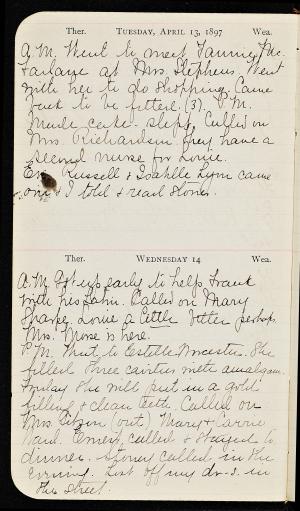 Ther. TUESDAY, APRIL 13, 1897 Wea.
A.M. Went to meet Fannie Mc.
Farlane at Mrs. Stephens. Went
with her to do shopping. Came
back to be fitted (3). P.M.
Made cake. Slept. Called on
Mrs. Richardson. They have a
second nurse for Louie.
Ev. Russell & Isabelle Lynn came
over & I told & read stories.
Ther. WEDNESDAY 14 Wea.
A.M. Got up early to help Frank
with his Latin. Called on Mary
Sharpe. Louie a little better perhaps.
Mrs. Morse is here.
P.M. Went to Estelle Worcester. She
filled three cavities with amalgam.
Friday she will put in a gold
filling & clean teeth. Called on
Mrs. (out) Mary & Carrie
Ward. Ernest called & stayed to
dinner. Storey called in the
evening. Lost off my dr-s. in
the street.